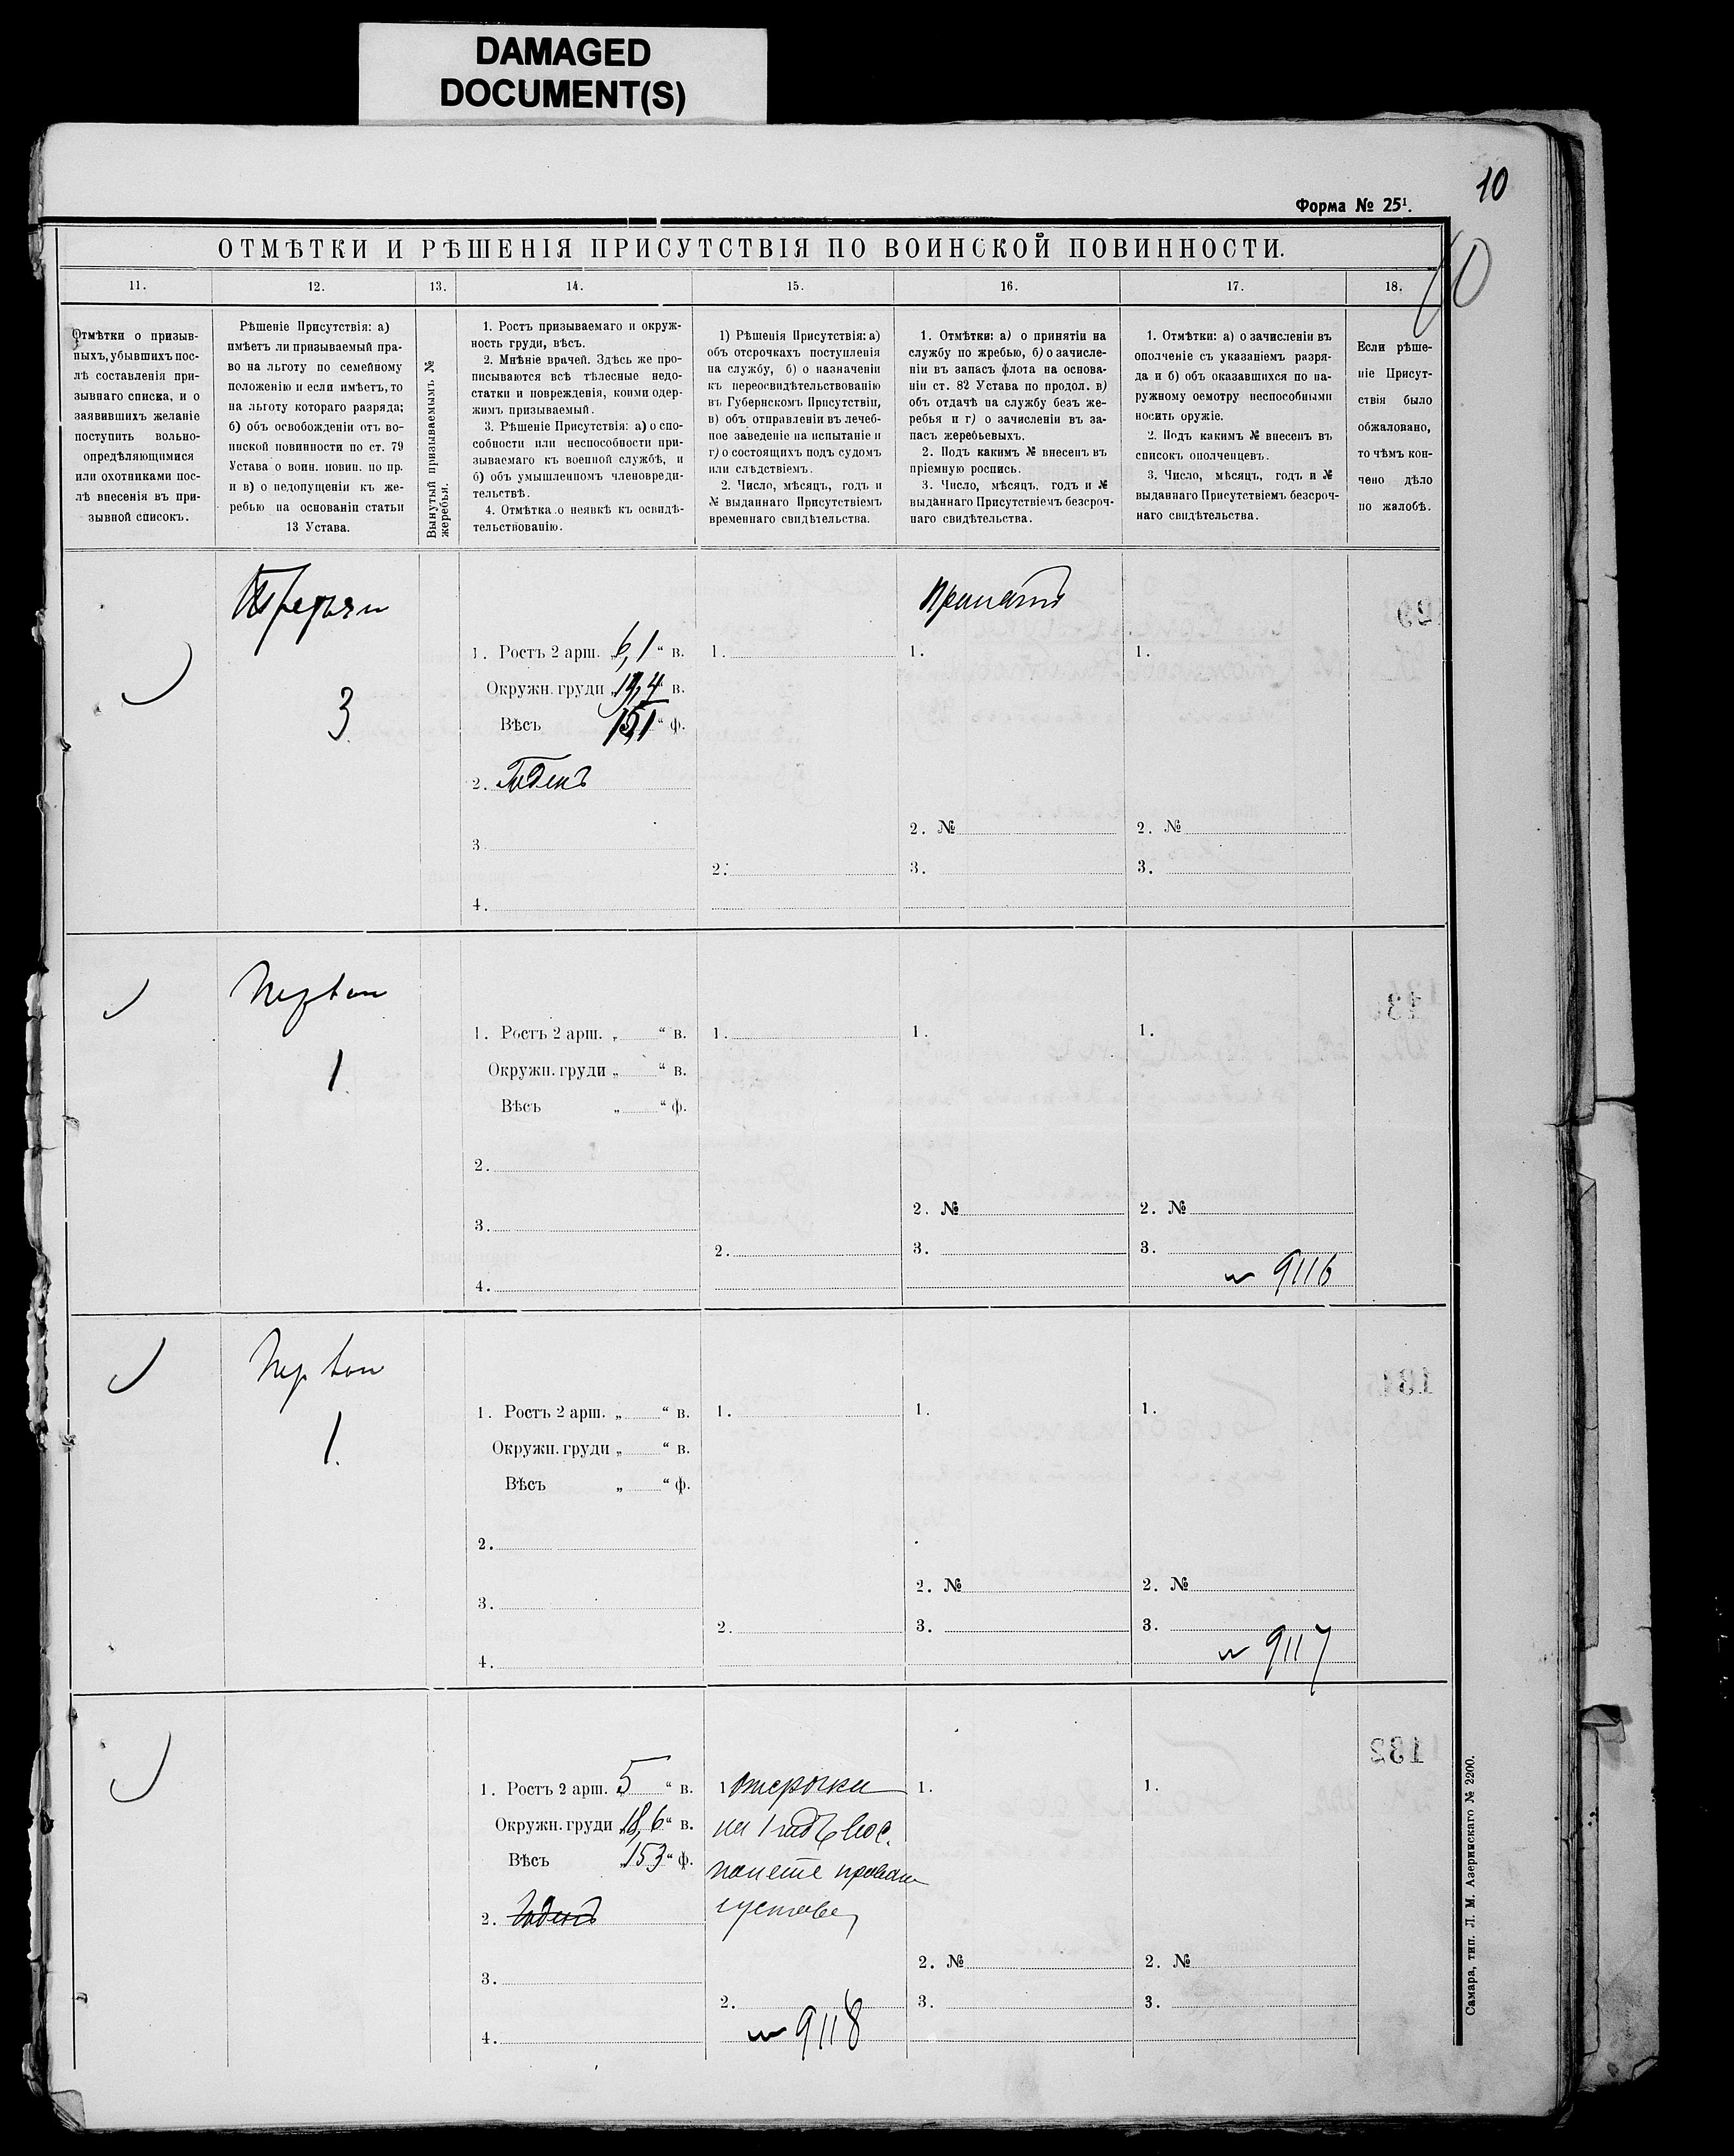 DAMAGED
DOCUMENT(S)
10
Форма № 25¹.
10
ОТМѢТКИ И РѢШЕНІЯ ПРИСУТСТВІЯ ПО ВОИНСКОЙ ПОВИННОСТИ.
11. 12. 13. 14. 15. 16. 17. 18.
Отмѣтки о призыв-
ныхъ, убывшихъ пос-
лѣ составленія при-
зывнаго списка, и о
заявившихъ желаніе
поступить вольно-
опредѣляющимися
или охотниками пос-
лѣ внесенія въ при-
зывной списокъ.
Рѣшеніе Присутствія: а)
имѣетъ ли призываемый пра-
во на льготу по семейному
положенію и если имѣетъ, то
на льготу котораго разряда;
б) объ освобожденіи отъ во-
инской повинности по ст. 79
Устава о воин. повин. по пр.
и в) о недопущеніи къ же-
ребью на основаніи статьи
13 Устава.
Вынутый призываемымъ №
жеребья.
1. Ростъ призываемаго и окруж-
ность груди, вѣсъ.
2. Мнѣніе врачей. Здѣсь же про-
писываются всѣ тѣлесные недо-
статки и поврежденія, коими одер-
жимъ призываемый.
3. Рѣшеніе Присутствія: а) о спо-
собности или неспособности при-
зываемаго къ военной службѣ, и
б) объ умышленномъ членовреди-
тельствѣ.
4. Отмѣтка о неявкѣ къ освидѣ-
тельствованію.
1) Рѣшенія Присутствія: а)
объ отсрочкахъ поступленія
на службу, б) о назначеніи
къ переосвидѣтельствованію
въ Губернскомъ Присутствіи,
в) объ отправленіи въ лечеб-
ное заведеніе на испытаніе и
г) о состоящихъ подъ судомъ
или слѣдствіемъ.
2. Число, мѣсяцъ, годъ и
№ выданнаго Присутствіемъ
временнаго свидѣтельства.
1. Отмѣтки: а) о принятіи на
службу по жребью, б) о зачисле-
ніи въ запасъ флота на основа-
ніи ст. 82 Устава по продол. в)
объ отдачѣ на службу безъ же-
ребья и г) о зачисленіи въ за-
пасъ жеребьевыхъ.
2. Подъ какимъ № внесенъ въ
пріемную роспись.
3. Число, мѣсяцъ, годъ и №
выданнаго Присутствіемъ безсроч-
наго свидѣтельства.
1. Отмѣтки: а) о зачисленіи въ
ополченіе съ указаніемъ разря-
да и б) объ оказавшихся по на-
ружному осмотру неспособными
носить оружіе.
2. Подъ какимъ № внесенъ въ
списокъ ополченцевъ.
3. Число, мѣсяцъ, годъ и №
выданнаго Присутствіемъ безсроч-
наго свидѣтельства.
Если рѣше-
ніе Присут-
ствія было
обжаловано,
то чѣмъ кон-
чено дѣло
по жалобѣ.
3
1. Ростъ 2 арш. „6,1“ в.
Окружн. груди „19,4“ в.
Вѣсъ „151“ ф.
2. Годенъ
3
4.
1.
2.
Принятъ
1.
2. №
3.
1.
2. №
3.
1.
1. Ростъ 2 арш. „ “ в.
Окружн. груди „ “ в.
Вѣсъ „ “ ф.
2.
3.
4.
1.
2.
1.
2. №
3.
1.
2. №
3.
9116
1.
1. Ростъ 2 арш. „ “ в.
Окружн. груди „ “ в.
Вѣсъ „ “ ф.
2.
3.
4.
1.
2.
1.
2. №
3.
1.
2. №
3.
9117
132
1. Ростъ 2 арш. 5 “ в.
Окружн. груди „18,6“ в.
Вѣсъ „153“ ф.
2. Годенъ
3.
4.
1 Отсрочки
на 1 годъ
2.
9118
1.
2. №
3.
1.
2. №
3.
Самара, тип. Л. М. Азеринскаго № 2200.